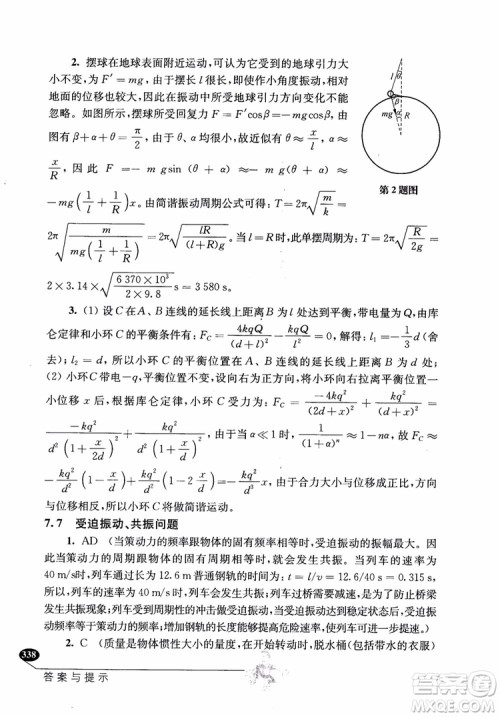 2. 摆球在地球表面附近运动,可以为它受的地球引力大
小不变,等于mg,由于摆长l很长,因此即使小角度振动,相对
地面的位移也较大,在振动中所受地球引力方向变化不能
忽略。如图所示,摆球所受回复力 F = F′cosβ = mgcosβ,由
图有 β + α + θ = π/2, 故 α + θ 也很小,故近似有 θ = x/l, α =
x/R, 因此 F = − mg sin (θ + α) ≈ − mg (θ + α) =
− mg (1/l + 1/R) x。由简谐振动周期公式可得: T = 2π√(m/k) =
2π√(m/(mg(1/l + 1/R))) = 2π√(lR/((l + R)g)),由于 l = R,此单摆周期 T = 2π√(R/2g) =
2 × 3.14 × √((6 370 × 10³)/(2 × 9.8)) s = 3 580 s。
l
θ
β
mg
α
R
第 2 题图
3. (1) 设 C 在 A、B 连线的延长线上距离 B 为 l 处达到平衡,带电量为 Q,由库
仑定律和小环 C 的平衡条件有: F_C = 4kqQ/(d + l)² − kqQ/l² = 0,解得: l₁ = − 1/3 d (舍
去); l₂ = d,所以小环 C 的平衡位置为 A、B 连线的延长线上距离 B 为 d 处。
(2) 小环 C 带电 −q,平衡位置不变,设向右为正方向,将小环向右拉离平衡位置一
小位移 x 后,根据库仑定律,小环 C 受力为: F_C = −4kq²/(2d + x)² + kq²/(d + x)² =
−kq²/(d²(1 + x/2d)²) + kq²/(d²(1 + x/d)²),由于当 α ≪ 1 时, 1/(1 + α)ⁿ ≈ 1 − nα,故得: F_C =
− kq²/d² (1 − x/d) + kq²/d² (1 − 2x/d) = − kq²/d³ x,由于合力大小与位移大小成正比,方向
相反,故小环 C 做简谐运动。
7.7 受迫振动、共振问题
1. AD (当策动力的频率跟物体的固有频率相等时,物体的振幅最大。因
此当策动力的周期跟物体的固有周期相等时,也发生共振。当列车的速率为
40 m/s时,列车通过长度为 12.6 m普通钢轨的时间为 t = l/v = 12.6/40 s =
0.315 s,等于列车的固有振动周期,所以列车的危险速率为 40 m/s,列车要防止
发生共振现象;列车过桥时为了防止列车发生共振现象,需要减速。列车运行的
振动频率总等于周期性的冲击力做受迫振动的频率,由 l = vt 可知 l 增大,t 不变
时,v 变大,所以增加钢轨的长度能提高危险速率,使列车可进一步提速)
2. C (质量是物体惯性大小的量度,在开始转动时,脱水桶(包括带水的衣服)
338
答案与提示